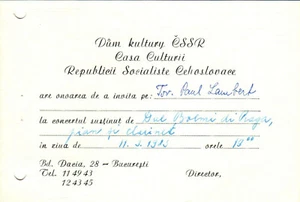 Dům kultury ČSSR
Casa Culturii
Republicii Socialiste Cehoslovace
are onoarea de a invita pe: Tov. Paul Lambert
la concertul susținut de Duo Bohmi di Praga,
piano și clarinet
în ziua de 11. 3. 1975 orele 19⁰⁰
Bd. Dacia, 28 — București
Tel. 11 49 43 Director,
12 43 45